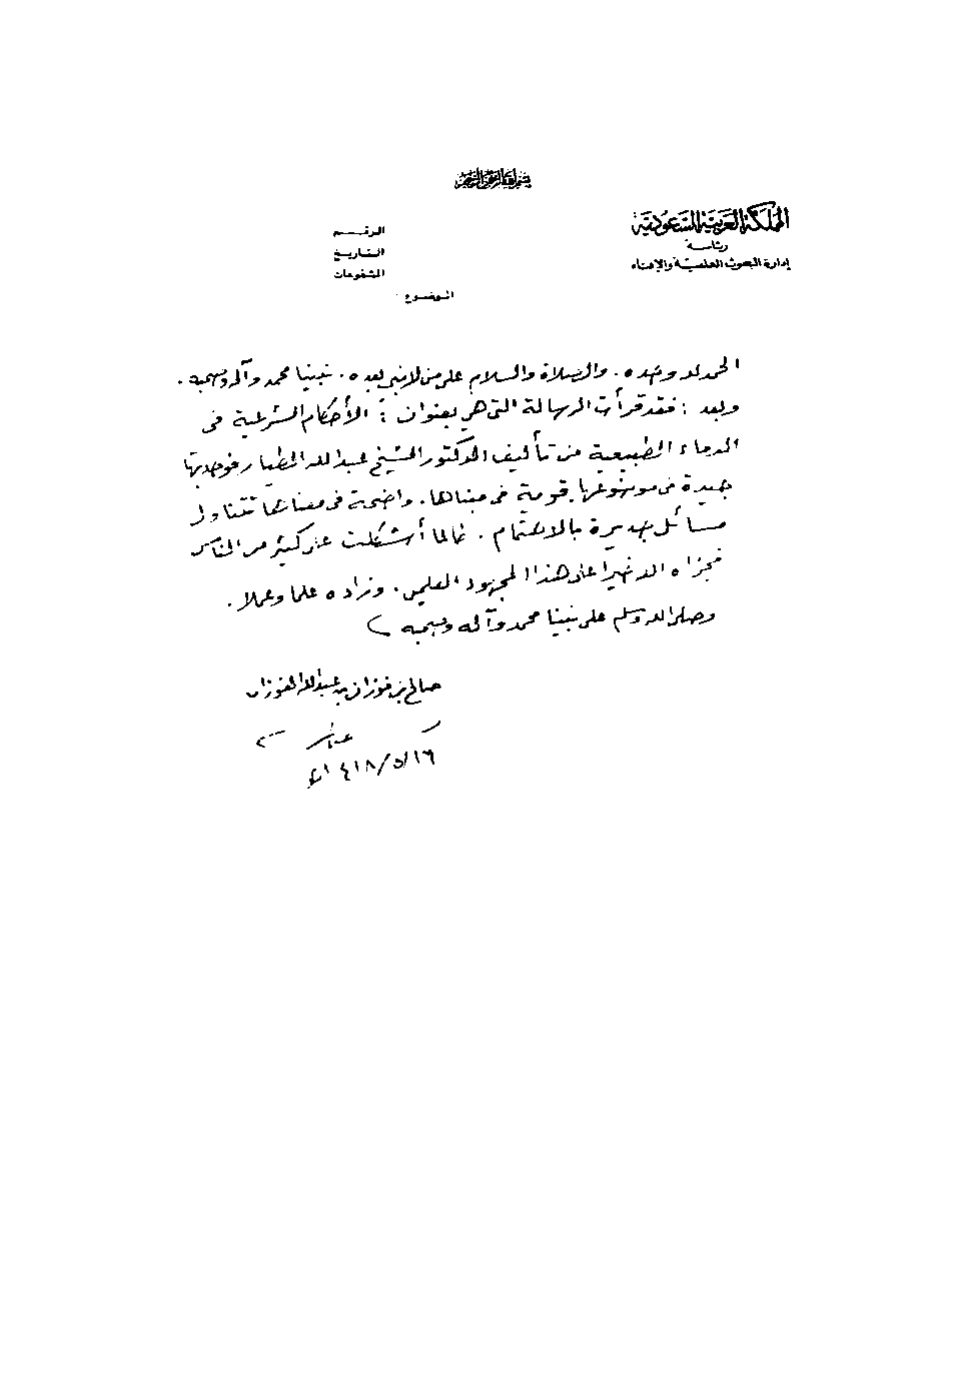 بسم الله الرحمن الرحيم
المملكة العربية السعودية
رئاسة
إدارة البحوث العلمية والإفتاء
الرقم
التاريخ
المشفوعات
الموضوع
الحمد لله وحده. والصلاة والسلام على من لا نبي بعده. نبينا محمد وآله وصحبه.
وبعد : فقد قرأت الرسالة التي هي بعنوان : الأحكام الشرعية في
الدماء الطبيعية من تأليف الدكتور الشيخ عبد الله الطيار فوجدتها
جيدة في موضوعها قوية في مبناها. واضحة في معناها تتناول
مسائل جديرة بالاهتمام. طالما أشكلت على كثير من الناس
فجزاه الله خيراً على هذا المجهود العلمي. وزاده علما وعملا.
وصلى الله وسلم على نبينا محمد وآله وصحبه
صالح بن فوزان بن عبد الله الفوزان
١٤١٨/٥/١٦هـ